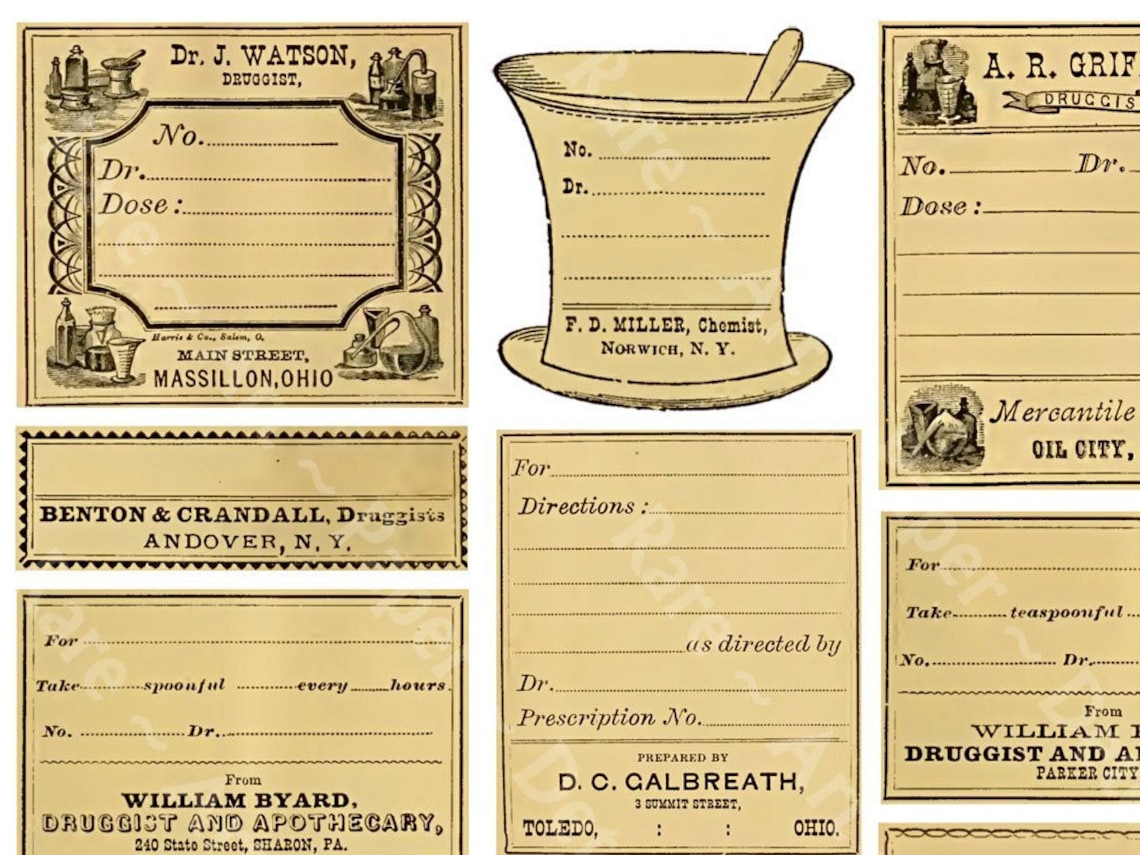 Dr. J. WATSON,
DRUGGIST,
No.
Dr.
Dose:
Harris & Co., Salem, O.
MAIN STREET,
MASSILLON, OHIO
BENTON & CRANDALL, Druggists
ANDOVER, N. Y.
For
Take spoonful every hours.
No. Dr.
From
WILLIAM BYARD,
DRUGGIST AND APOTHECARY,
240 State Street, SHARON, PA.
No.
Dr.
F. D. MILLER, Chemist,
NORWICH, N. Y.
For
Directions:
as directed by
Dr.
Prescription No.
PREPARED BY
D. C. GALBREATH,
3 SUMMIT STREET,
TOLEDO, : : OHIO.
A. R. GRIF
DRUGGIS
No. Dr.
Dose:
Mercantile
OIL CITY,
For
Take teaspoonful
No. Dr.
From
WILLIAM
DRUGGIST AND A
PARKER CITY